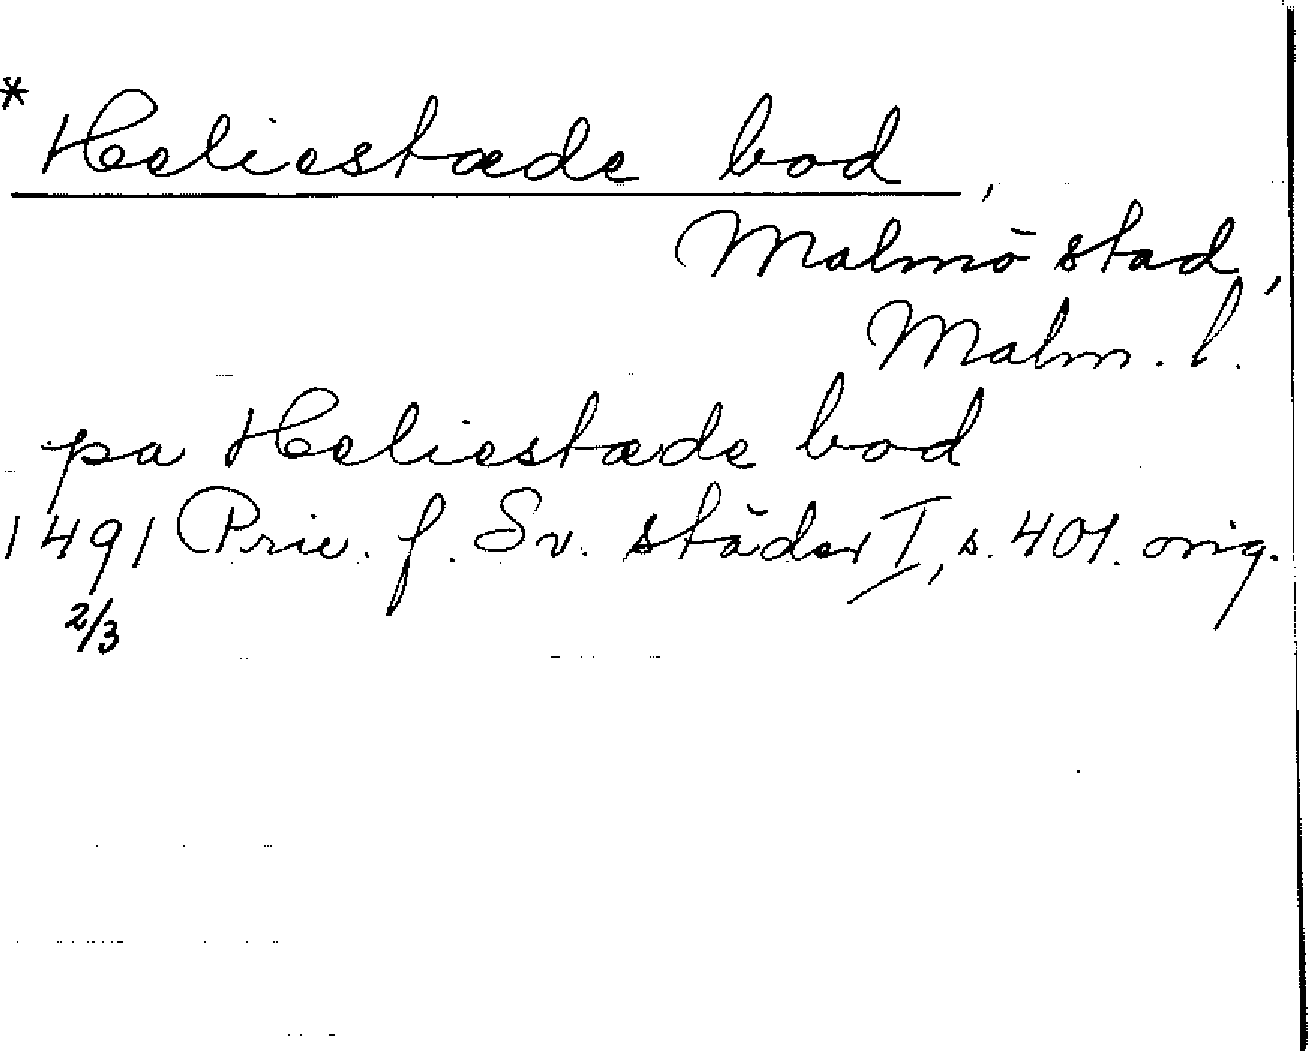 * Heliestæde bod,
Malmö stad,
Malm. l.
pa Heliestæde bod
1491 Priv. f. Sv. städer I, s. 401. orig.
2/3